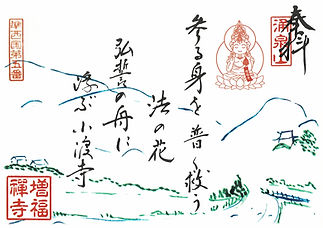 奉拝
涌泉山
参る身を普く救う
法の花
弘誓の舟に
浮ぶ小渡寺
西国第五番
増福禅寺